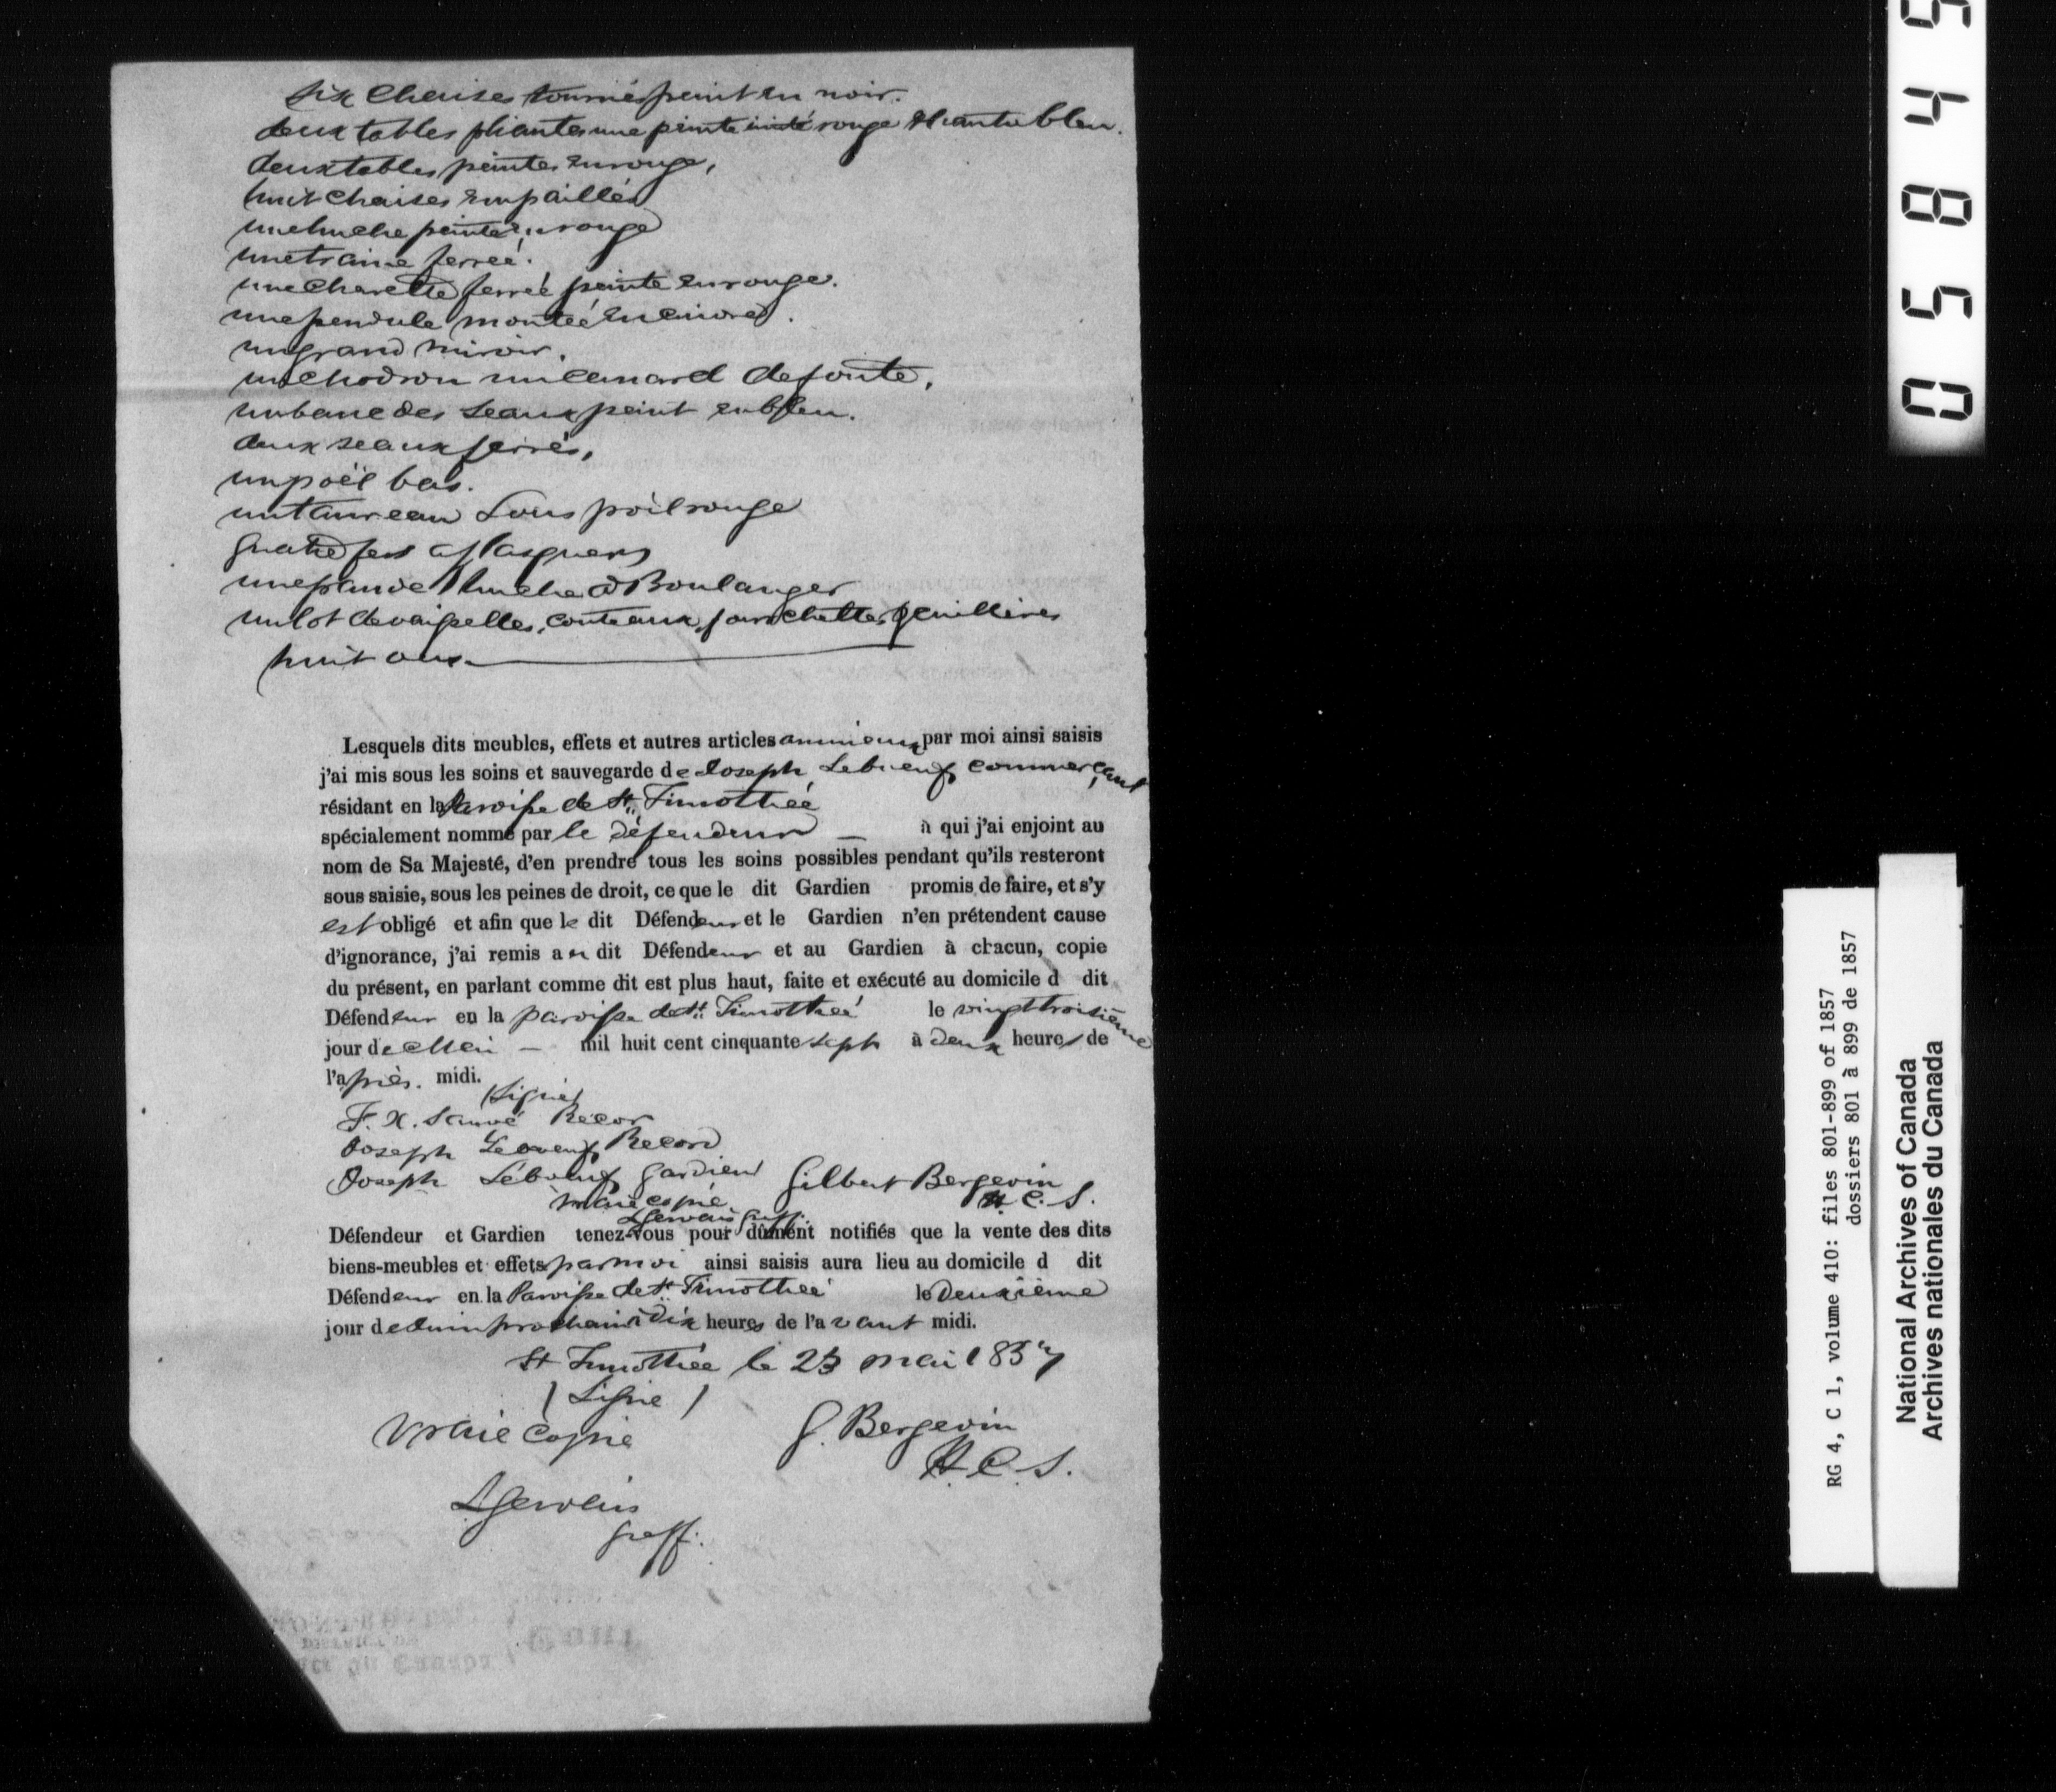 six chaises tournés peint en noir.
deux tables pliantes une peinte rouge et l'autre bleu.
deux tables peintes en rouge,
huit chaises empaillés
une huche peinte en rouge
une traine ferreé.
une charette ferreé peinte en rouge.
une pendule monteé en cuivre.
un grand miroir.
un chodron un canard de fonte,
un banc des seaux peint en bleu.
deux seaux ferrés,
un poël bas.
un taureau sous poil rouge
quatre fers a
une grande huche a Boulanger
un lot de vaisselles, couteaux, fourchettes, quillières
huit
Lesquels dits meubles, effets et autres articles animaux par moi ainsi saisis
j'ai mis sous les soins et sauvegarde de Joseph Lebœuf commerçant
résidant en la Paroisse de St. Timotheé
spécialement nommé par le défendeur — à qui j'ai enjoint au
nom de Sa Majesté, d'en prendre tous les soins possibles pendant qu'ils resteront
sous saisie, sous les peines de droit, ce que le dit Gardien promis de faire, et s'y
est obligé et afin que le dit Défendeur et le Gardien n'en prétendent cause
d'ignorance, j'ai remis au dit Défendeur et au Gardien à chacun, copie
du présent, en parlant comme dit est plus haut, faite et exécuté au domicile d dit
Défendeur en la paroisse de St. Timotheé le vingt troisième
jour de Mai — mil huit cent cinquante sept à deux heures de
l'après. midi.
(Signé)
F. X. Sauvé Recor
Joseph Leboeuf Record
Joseph Lébœuf Gardien Gilbert Bergevin
H. C. S.
Vraie copie
LGervais Greff.
Défendeur et Gardien tenez-vous pour dûment notifiés que la vente des dits
biens-meubles et effets par moi ainsi saisis aura lieu au domicile d dit
Défendeur en la Paroisse de St. Timotheé le deuxième
jour de Juin prochain à dix heures de l'avant midi.
St Timothée le 23 mai 1857
(Signé)
Vraie Copie G. Bergevin
H. C. S.
LGervais
Greff.
05849
RG 4, C 1, volume 410: files 801-899 of 1857
dossiers 801 à 899 de 1857
National Archives of Canada
Archives nationales du Canada